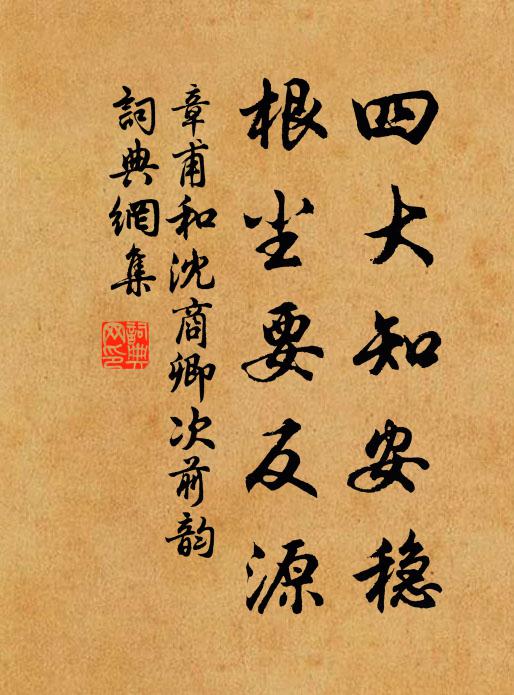 四大知安稳
根尘要反源
章甫和沈商卿次前韵
詞典網集
詞典网印